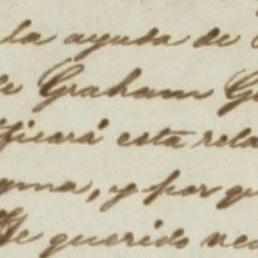 la ayuda de
de Graham G
ificará esta rela
gma, y por qu
He querido ver